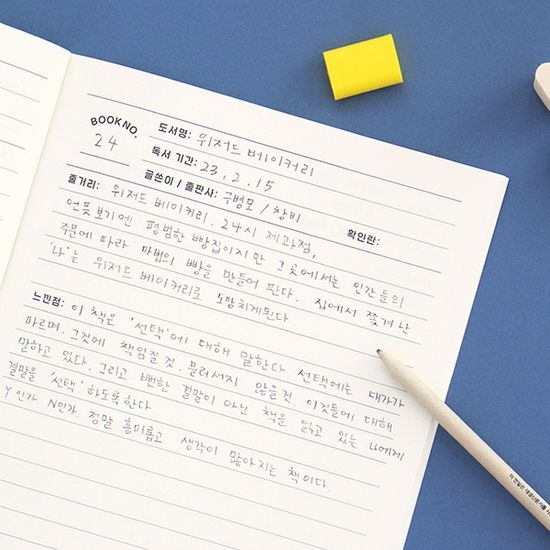 BOOK NO.
24
도서명: 위저드 베이커리
독서 기간: 23. 2. 15
글쓴이 / 출판사: 구병모 / 창비
확인란:
줄거리: 위저드 베이커리. 24시 제과점,
언뜻보기엔 평범한 빵집이지만 그 곳에서는 인간들의
주문에 따라 마법의 빵을 만들어 판다. 집에서 쫓겨난
'나'는 위저드 베이커리로 도망치게된다
느낀점: 이 책은 '선택'에 대해 말한다 선택에는 대가가
따르며, 그것에 책임질 것. 물러서지 않을것. 이것들에 대해
말하고 있다. 그리고 뻔한 결말이 아닌 책을 읽고 있는 나에게
결말을 '선택' 하도록한다
Y인가 N인가. 정말 흥미롭고 생각이 많아지는 책이다.